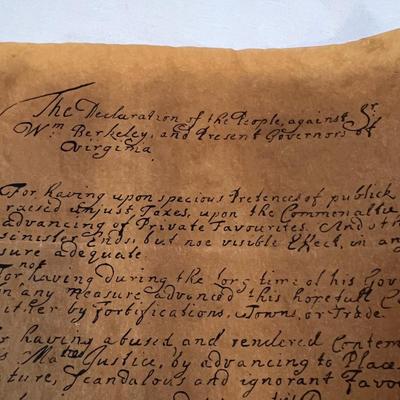 The Declaration of the People, against Sr:
Wm Berkeley, and Present Governors of
Virginia.
For having upon specious Pretences of publick
raised unjust Taxes, upon the Commenaltie
advancing of Private Favourites. And oth
sinister Ends, but noe visible Effect, in any
sure adequate.
For not having during the long time of his Gov
in any measure advanced this hopefull C
either by Fortifications, Towns, or Trade.
or having abused and rendered Contem
s Maties Justice, by advancing to Place
ture, Scandalous and ignorant Favo